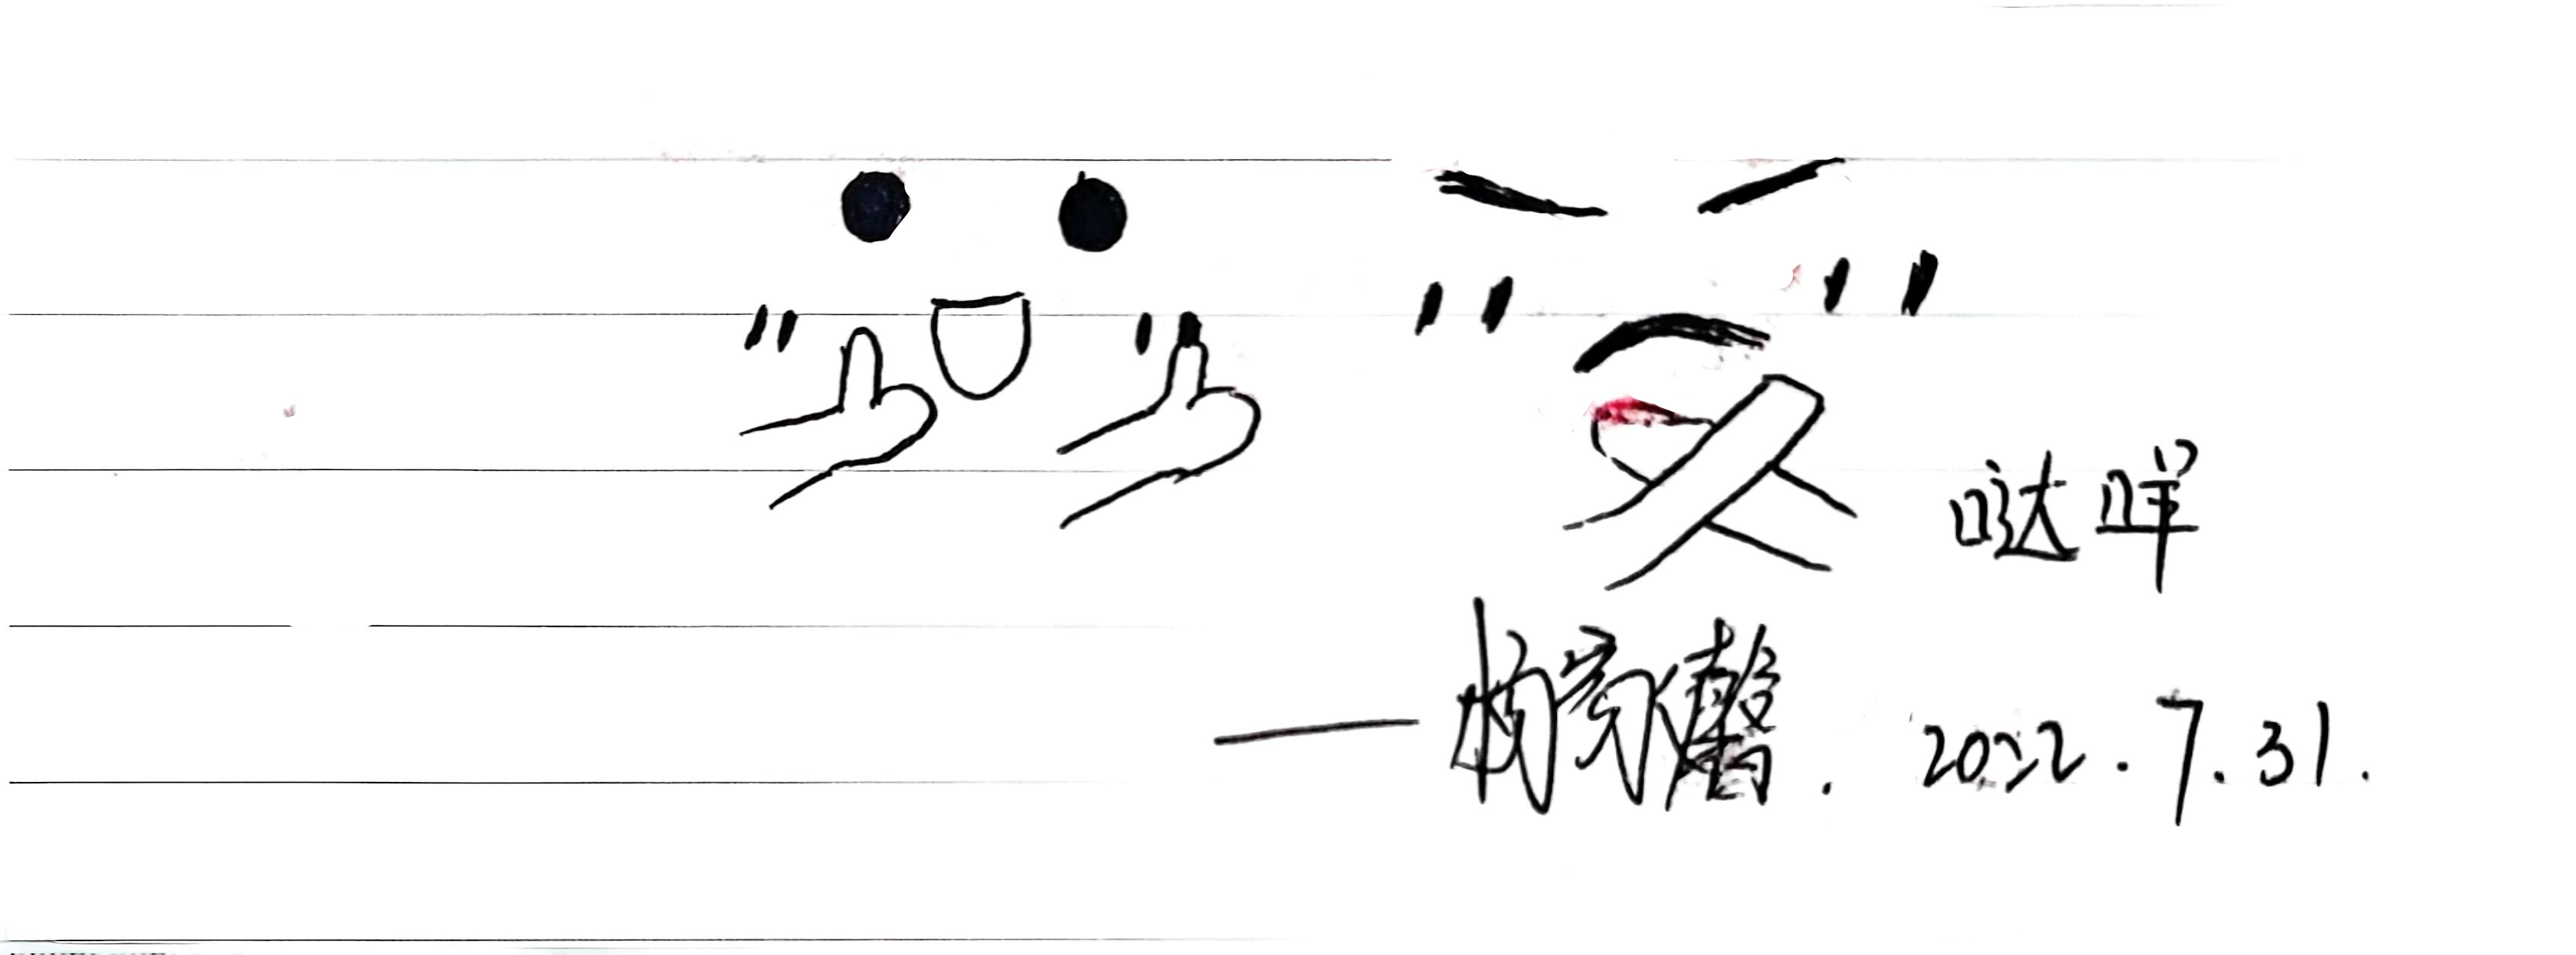 哒咩
—杨芳馨. 2022.7.31.